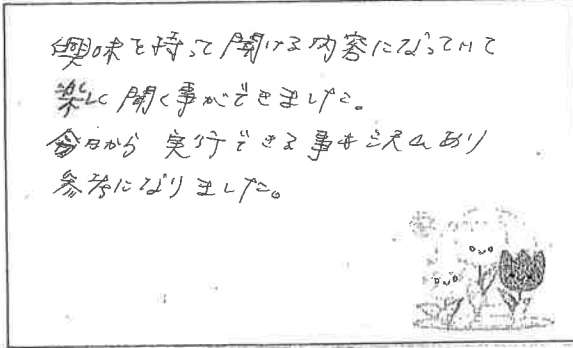 興味を持って聞ける内容になっていて
楽しく聞く事ができました。
今日から実行できる事も沢山あり
参考になりました。